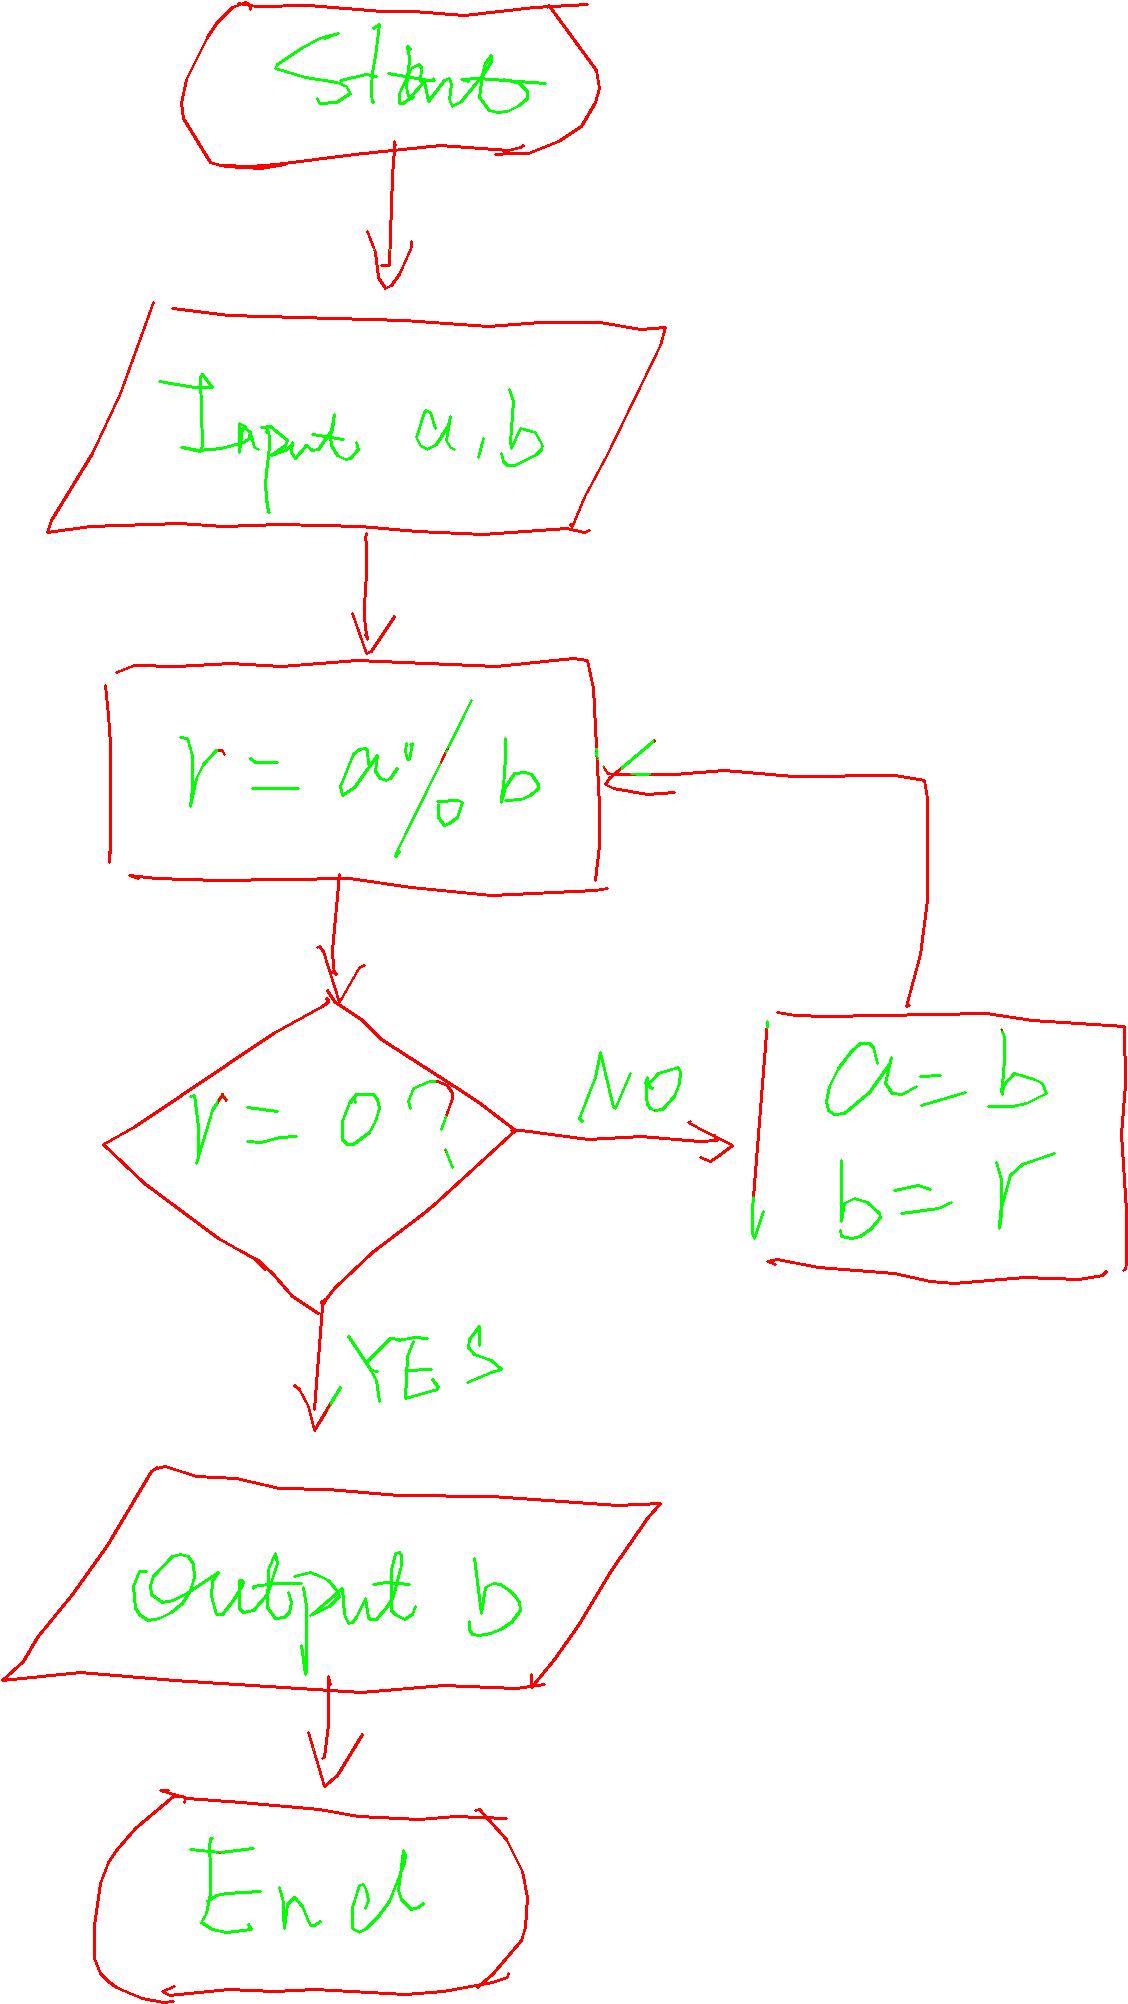 Start
Input a,b
r = a % b
r = 0?
NO
a = b
b = r
YES
Output b
End